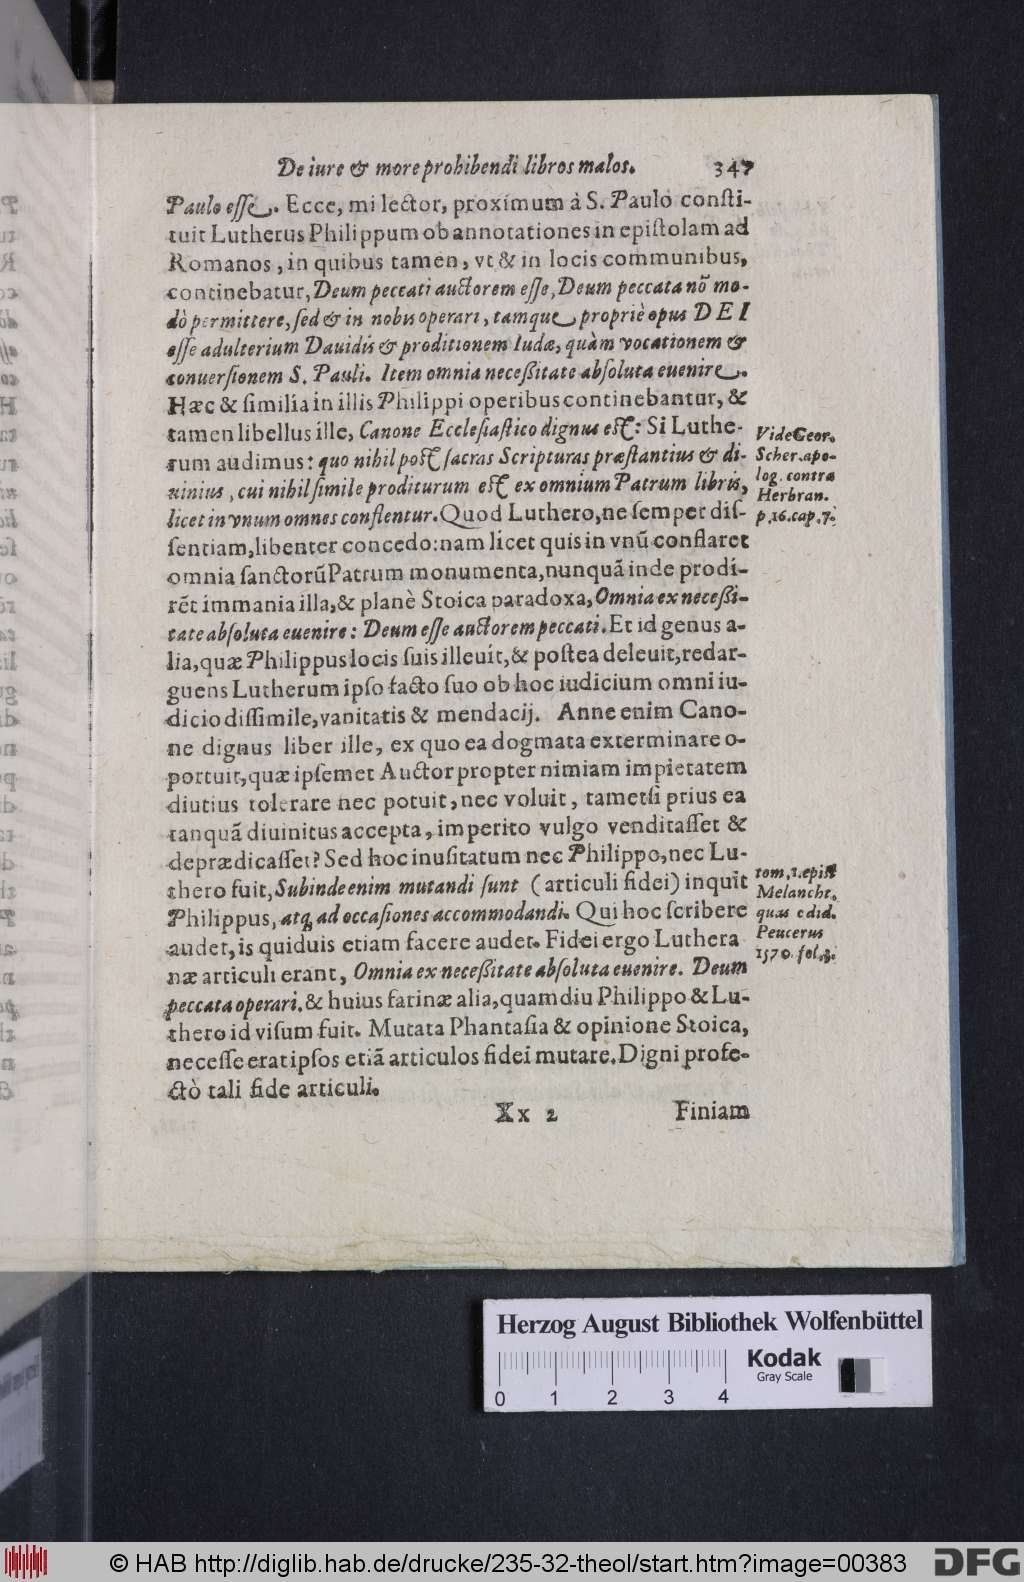 De iure & more prohibendi libros malos. 347
Paulo esse. Ecce, mi lector, proximum à S. Paulo consti-
tuit Lutherus Philippum ob annotationes in epistolam ad
Romanos, in quibus tamen, vt & in locis communibus,
continebatur, Deum peccati auctorem esse, Deum peccata nō mo-
dò permittere, sed & in nobis operari, tamque propriè opus DEI
esse adulterium Dauidis & proditionem Iudæ, quàm vocationem &
conuersionem S. Pauli. Item omnia necessitate absoluta euenire.
Hæc & similia in illis Philippi operibus continebantur, &
tamen libellus ille, Canone Ecclesiastico dignus est: Si Luthe-
rum audimus: quo nihil post sacras Scripturas præstantius & di-
uinius, cui nihil simile proditurum est ex omnium Patrum libris,
licet in vnum omnes conflentur. Quod Luthero, ne semper dis-
sentiam, libenter concedo: nam licet quis in vnū conflaret
omnia sanctorū Patrum monumenta, nunquā inde prodi-
rēt immania illa, & planè Stoica paradoxa, Omnia ex necessi-
tate absoluta euenire: Deum esse auctorem peccati. Et id genus a-
lia, quæ Philippus locis suis illeuit, & postea deleuit, redar-
guens Lutherum ipso facto suo ob hoc iudicium omni iu-
dicio dissimile, vanitatis & mendacij. Anne enim Cano-
ne dignus liber ille, ex quo ea dogmata exterminare o-
portuit, quæ ipsemet Auctor propter nimiam impietatem
diutius tolerare nec potuit, nec voluit, tametsi prius ea
tanquā diuinitus accepta, imperito vulgo venditasset &
deprædicasset? Sed hoc inusitatum nec Philippo, nec Lu-
thero fuit, Subinde enim mutandi sunt (articuli fidei) inquit
Philippus, atq; ad occasiones accommodandi. Qui hoc scribere
audet, is quiduis etiam facere audet. Fidei ergo Luthera
næ articuli erant, Omnia ex necessitate absoluta euenire. Deum
peccata operari. & huius farinæ alia, quamdiu Philippo & Lu-
thero id visum fuit. Mutata Phantasia & opinione Stoica,
necesse erat ipsos etiā articulos fidei mutare. Digni profe-
ctò tali fide articuli.
Xx 2 Finiam
Vide Geor.
Scher. apo-
log. contra
Herbran.
p. 16. cap. 7.
tom. 1. epist
Melancht.
quas edid.
Peucerus
1570. fol. 3.
Herzog August Bibliothek Wolfenbüttel
0 1 2 3 4
Kodak
Gray Scale
© HAB http://diglib.hab.de/drucke/235-32-theol/start.htm?image=00383
DFG